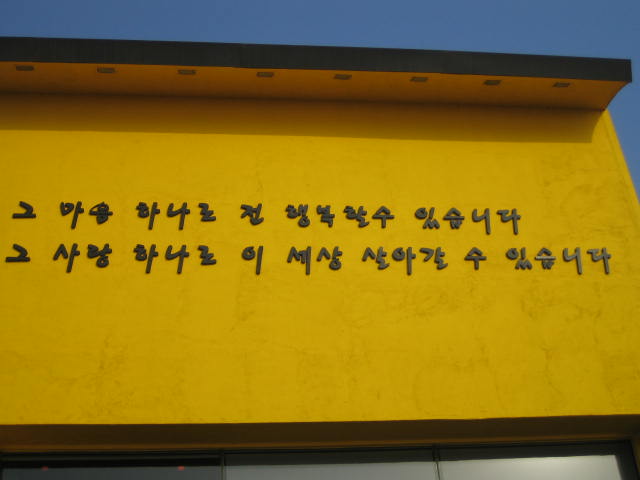 그 마음 하나로 전 행복할수 있습니다
그 사랑 하나로 이 세상 살아갈 수 있습니다